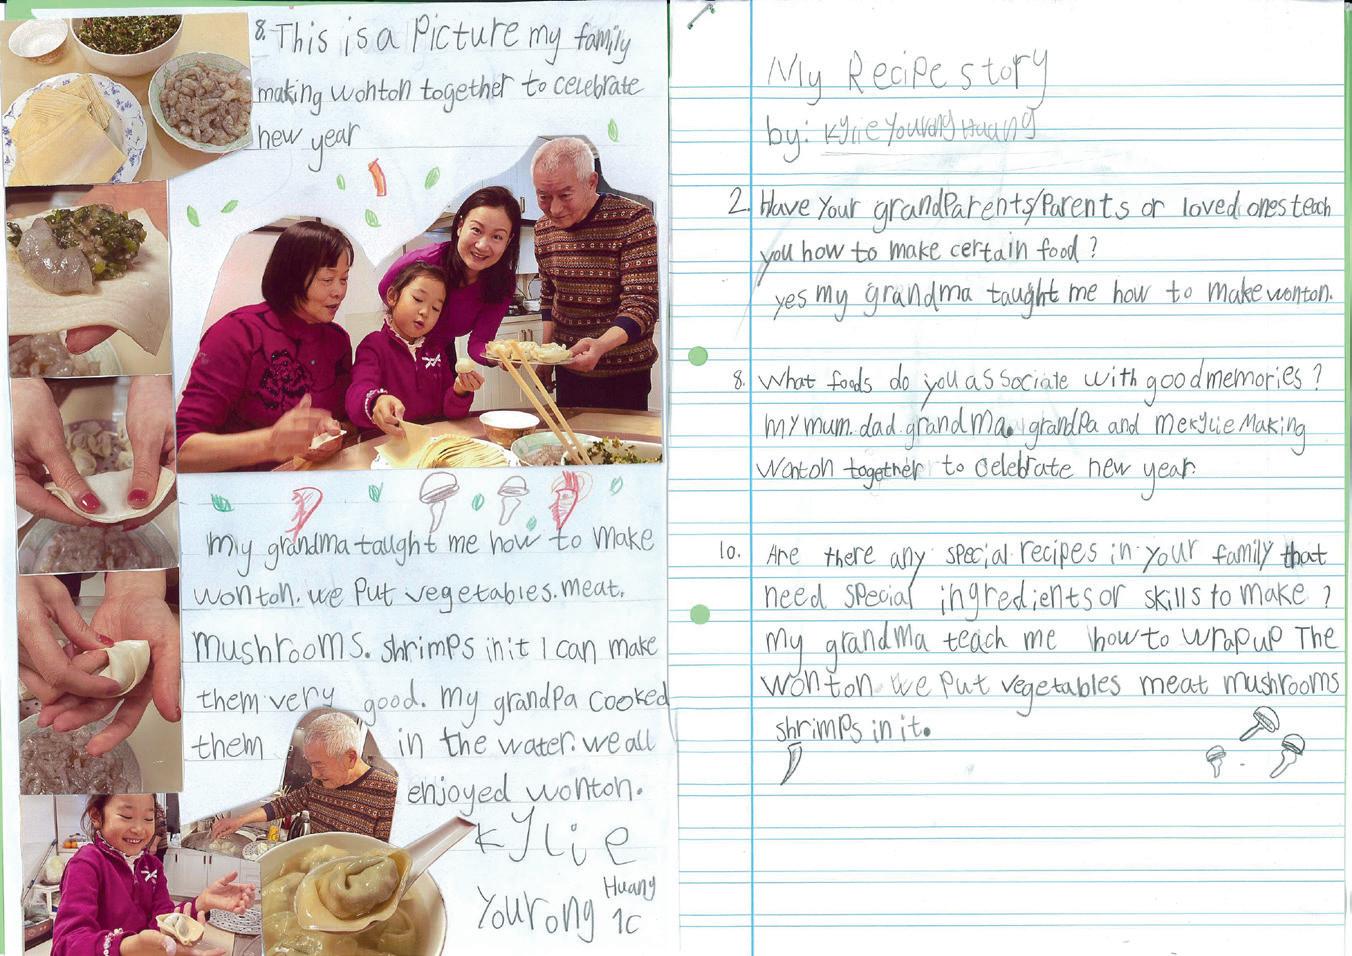 8. This is a Picture my family
making wonton together to celebrate
new year
my grandma taught me how to make
wonton. we Put vegetables. meat.
mushrooms. shrimps in it I can make
them very good. my grandpa cooked
them in the water. we all
enjoyed wonton.
Kylie
Yourong Huang
1c
My Recipe story
by: Kylie Yourong Huang
2. Have Your grandParents/Parents or loved ones teach
you how to make certain food?
yes my grandma taught me how to make wonton.
8. What foods do you associate with good memories?
my mum. dad. grandma. grandpa and me Kylie Making
wonton together to celebrate new year.
10. Are there any special recipes in your family that
need special ingredients or skills to make?
my grandma teach me how to wrap up The
wonton. we Put vegetables meat mushrooms
shrimps in it.